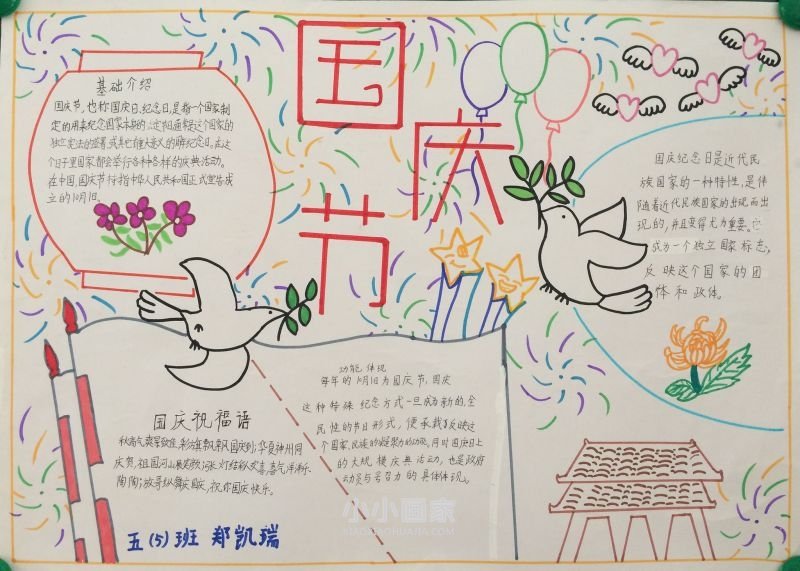 国庆节
基础介绍
国庆节,也称国庆日,纪念日,是指一个国家制
定的用来纪念国家本身的
这个国家的
独立
日子里国家都会举行各种各样的庆典活动。
在中国,国庆节
中华人民共和国正式宣告成
立的10月1日。
国庆纪念日是近代民
族国家的一种特性,是伴
随着近代民族国家的出现而出
现的,并且变得尤为重要。它
成为一个独立国家标志,
反映这个国家的团
体和政体。
功能体现
每年的10月1日为国庆节,国庆
这种特殊纪念方式一旦成为新的,全
民性的节日形式,便承载了反映这
个国家,民族的凝聚力的功能,同时国庆日上
的大规模庆典活动,也是政府
动员与号召力的具体体现。
国庆祝福语
秋高气爽
国庆到;华夏神州同
庆贺,祖国河山
张灯结彩
喜气洋洋乐
陶陶;放歌纵舞
国庆,祝你国庆快乐。
五(5)班 郑凯瑞
小小画家
XIAOXIAOHUAJIA.COM